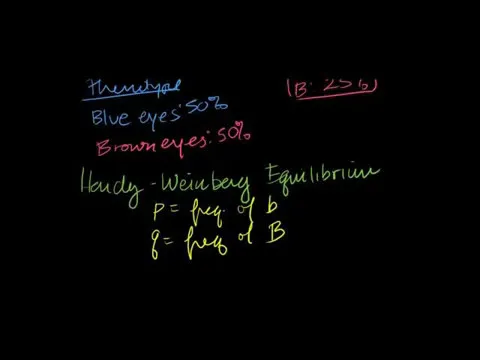 Phenotype
B: 25%
Blue eyes: 50%
Brown eyes: 50%
Hardy-Weinberg Equilibrium
p = freq. of b
q = freq of B